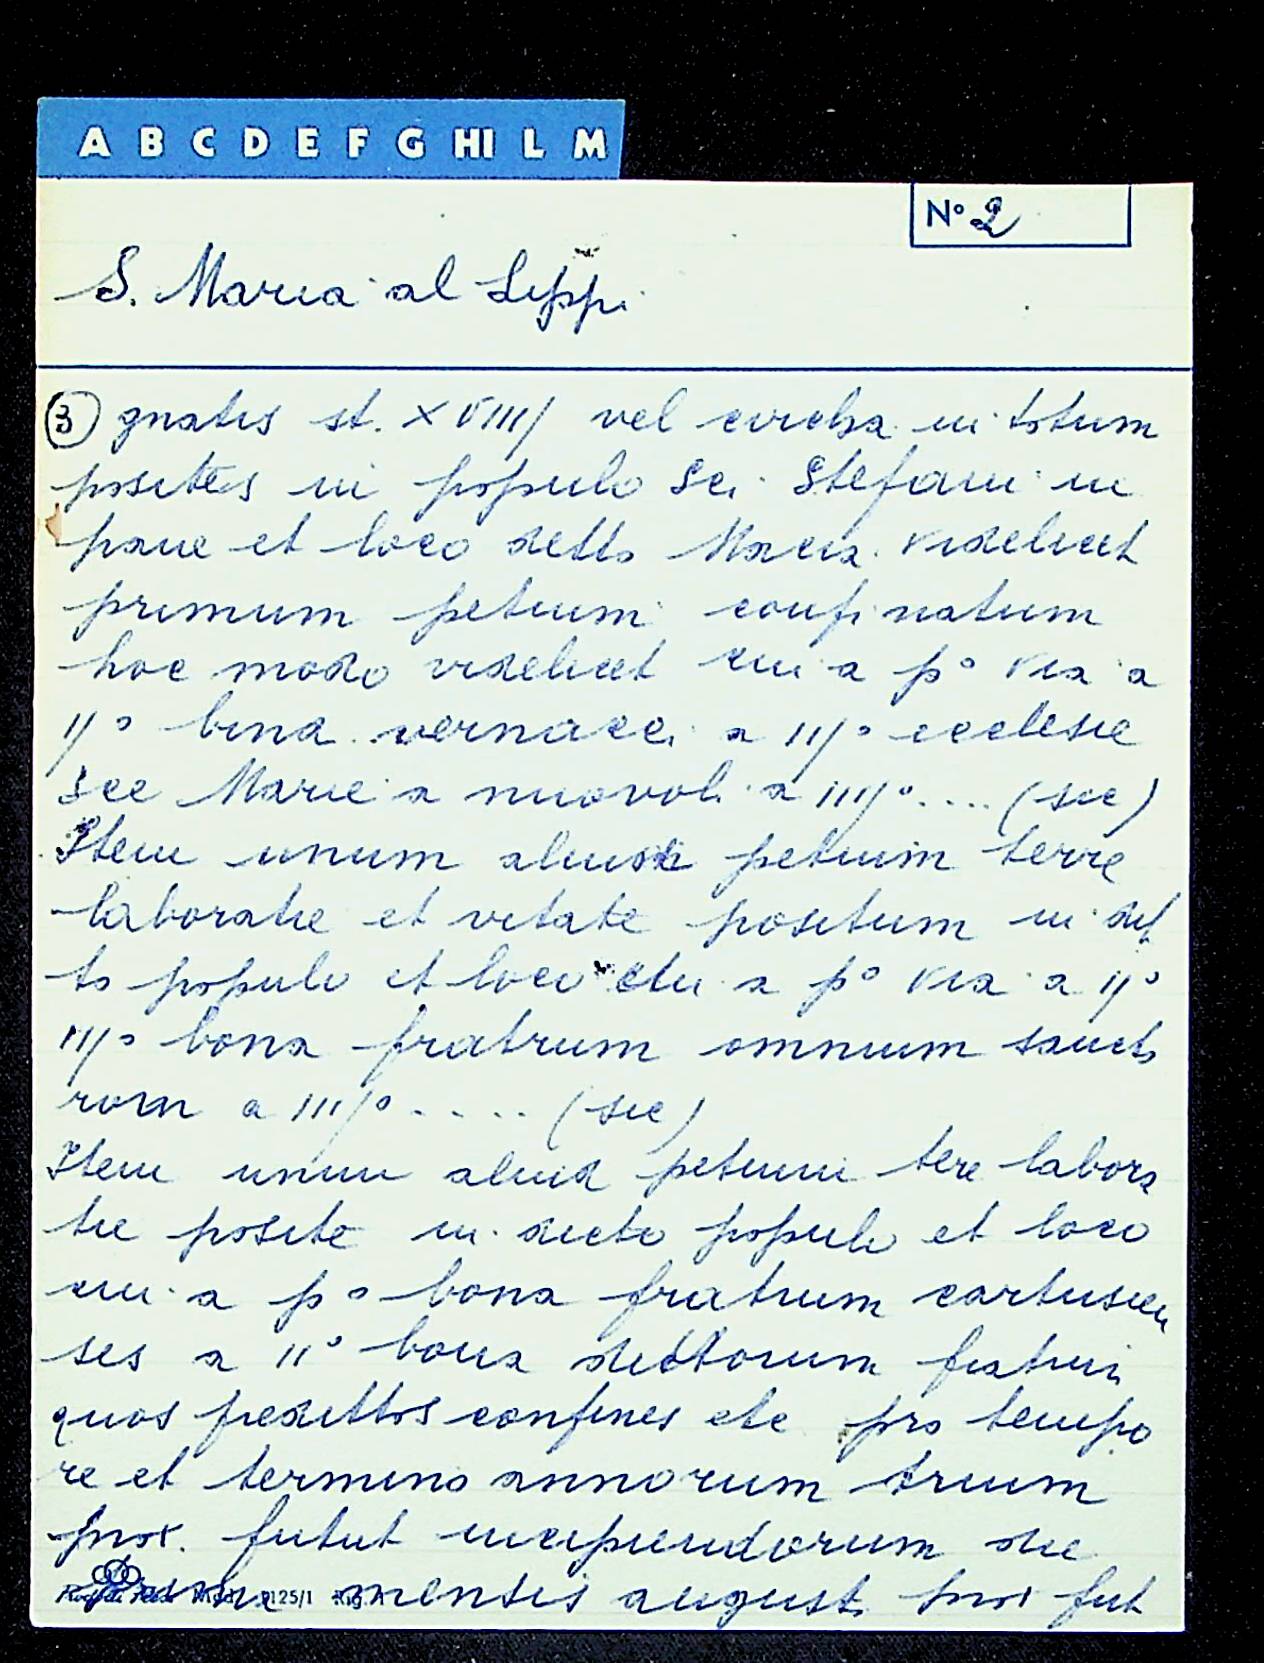 A B C D E F G HI L M
Nº 2
S. Maria al Lippi
3 gnatis st. XVIIII vel circha in totum
posites in populo Sci. Stefani in
pane et loco detto Macia. videlicet
primum petium confinatum
hoc modo videlicet cui a pº via a
IIº bona vernacci a IIIº ecclesie
See Marie a nuovoli a IIIIº .... (sic)
Item unum aliud petium terre
laboratie et vitate positum in det
to populo et loco cui a pº via a IIº
IIIº bona fratrum omnium sancto
rom a IIIIº ..... (sic)
Item unum aliud petium tere labora
tie posite in dicto populo et loco
cui a pº bona fratrum cartusien
ses a IIº bona dittorum fratrum
quos predittos confines etc pro tempo
re et termino annorum trium
prox. futut incipiendorum die
prima mensis augusti prox fut
125/1